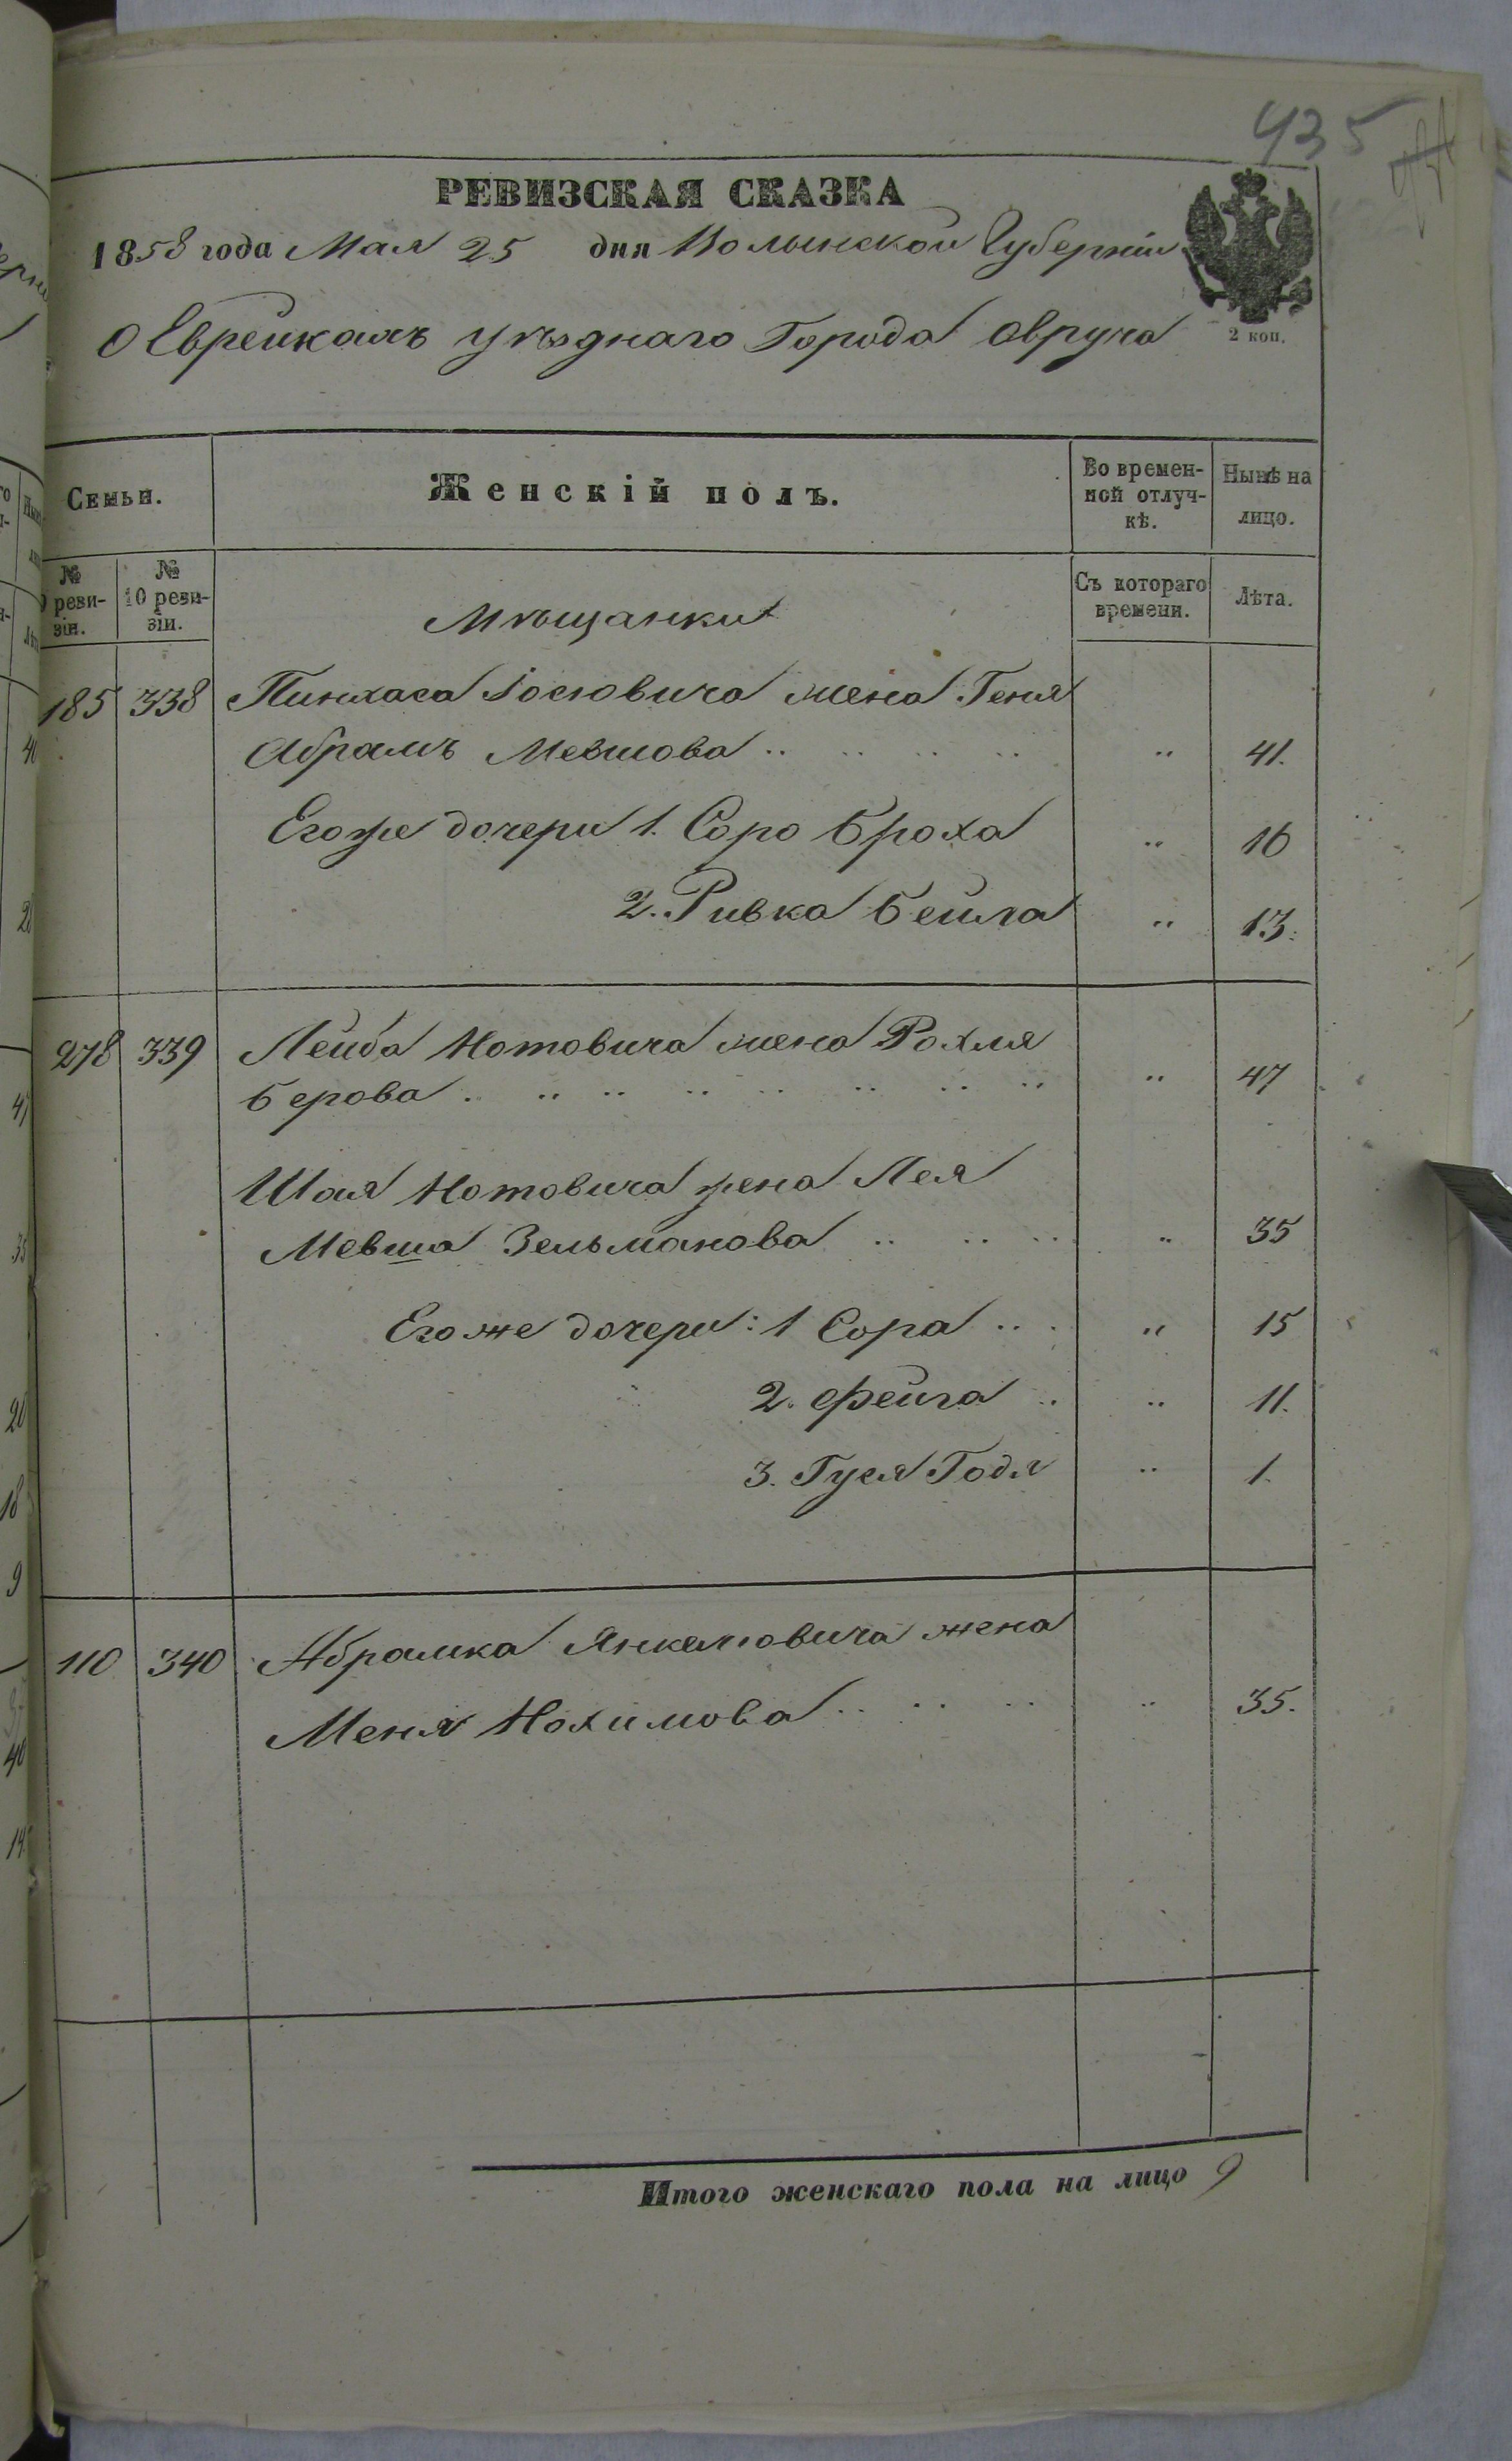 435
РЕВИЗСКАЯ СКАЗКА
1858 года Мая 25 дня Волынской Губерніи
2 коп.
О Еврейкахъ уѣзднаго Города Овруча
Семьи.
Женскій полъ.
Во времен-
ной отлуч-
кѣ.
Нынѣ на
лицо.
№
реви-
зіи.
№
10 реви-
зіи.
Съ котораго
времени.
Лѣта.
Мѣщанки
185 338 Пинхаса Іосіовича жена Геня
Абрамъ Мевшова .. .. .. .. .. 41.
Егоже дочери 1. Соро Броха .. 16
2. Ривка Бейла .. 13.
278 339 Лейба Нотовича жена Рохля
Берова . .. .. .. .. .. .. .. .. 47
Шая Нотовича жена Лея
Мевша Зельманова .. .. .. .. 35
Егоже дочери: 1 Сора .. . .. 15
2. Фейга .. .. 11.
3. Гуся Годя .. 1.
110 340 Абрамка Янкелювича жена
Меня Нохимова .. .. .. .. 35.
Итого женскаго пола на лицо 9